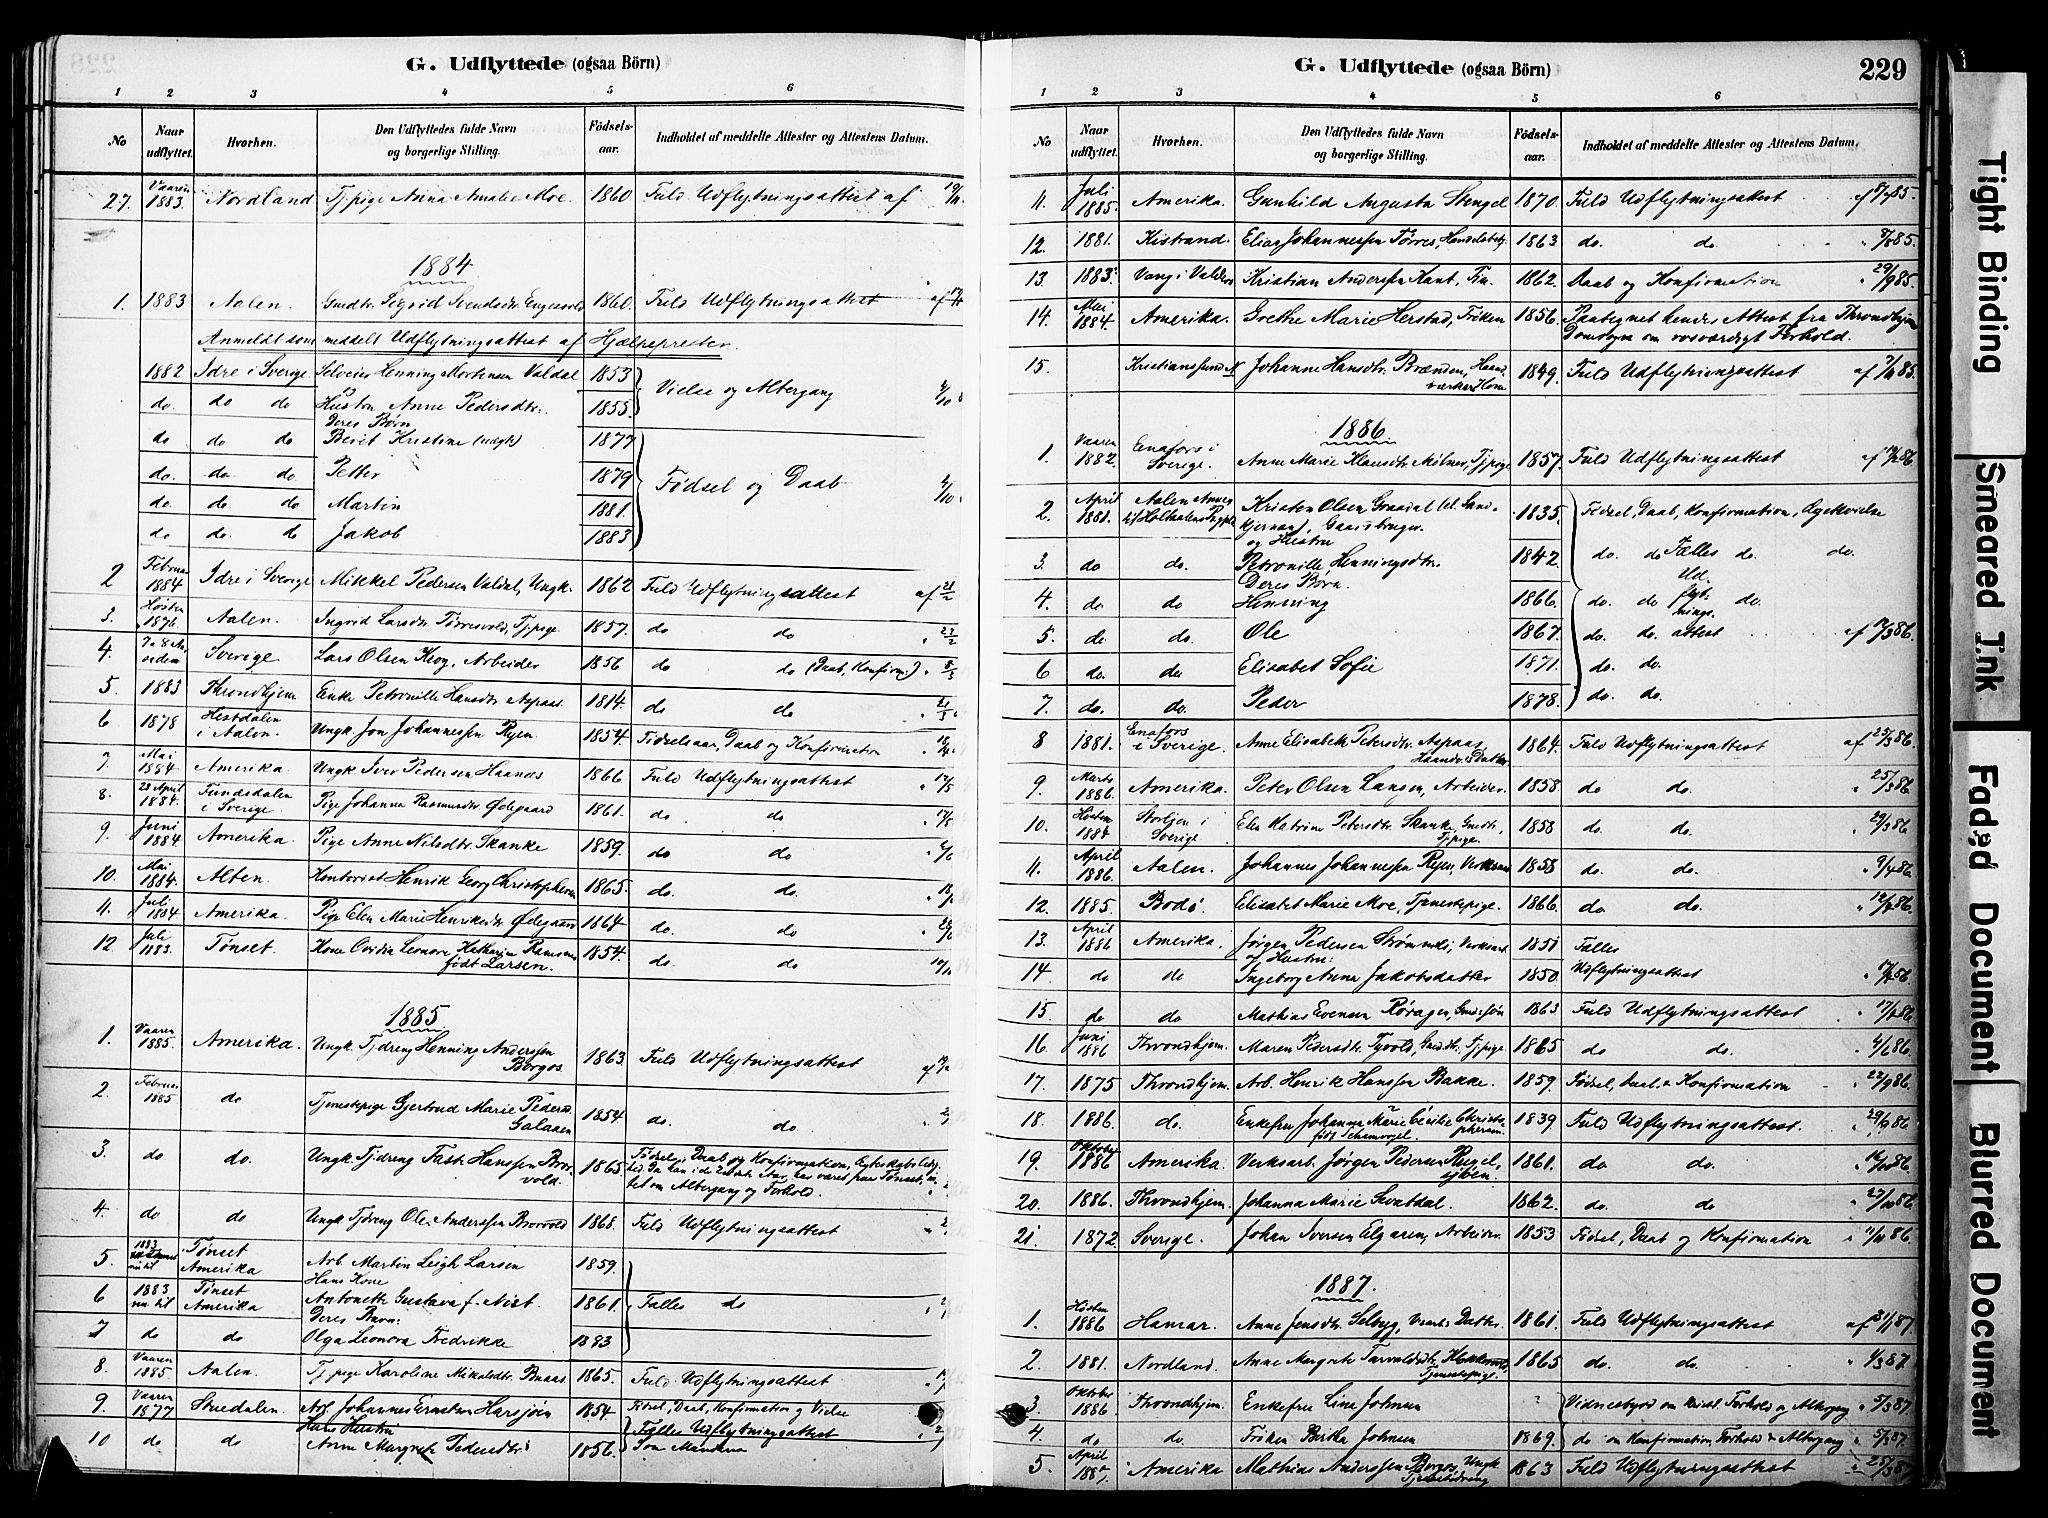 G. Udflyttede (ogsaa Börn)
1 2 3 4 5 6
No Naar udflyttet. Hvorhen. Den Udflyttedes fulde Navn og borgerlige Stilling. Födsels-aar. Indholdet af meddelte Attester og Attestens Datum.
27. Vaaren 1883. Nordland Tjpige Anna Amalie Moe. 1860 Fuld Udflytningsattest af
1884
1. 1883 Aalen. Gmdtr. Sigrid Svendsdtr. 1860. Fuld Udflytningsattest
Anmeldt som meddelt Udflytningsattest af Hjælpeprester.
1882 Idre i Sverige. Selveier Henning Mortensen Valdal 1853 Vielse og Altergang
do. do do Hustru Anne Pedersdtr. 1855.
Deres Børn
do do do Beret Kristine 1877
do. do. do. Petter 1879 Fødsel og Daab
do. do. do Martin 1881.
do do. do Jakob 1883
2 Februar 1884 Idre i Sverige Mikkel Pedersen Valdal, Ungk. 1862 Fuld Udflytningsattest af 21/2
3. Høsten 1876. Aalen. Ingrid Larsdtr. Tørresvold, Tjpige. 1857. do do
4. Sverige. Lars Olsen Krog, Arbeider 1856 do do (Daab, Konfirm.)
5. 1883 Throndhjem Enke Petronille Hansdtr. Aspaas 1814. do do
6 1878 Hestdalen i Aalen. Ungk. Jon Johannessen Ryen 1854. Fødselsaar, Daab og Konfirmation
7. Mai 1884 Amerika. Ungk Iver Pedersen Haanes 1866 Fuld Udflytningsattest
8. 28 April 1884. Fundsdalen i Sverige. Pige Johanna Rasmusdtr. Ødegaard 1861. do do
9. Juni 1884 Amerika. Pige Anne Nilsdtr. Skanke 1859. do do
10. Mai 1884. Alten. Kontorist Henrik Georg Christophersen 1865. do do.
11. Juli 1884 Amerika. Pige Elen Marie Henriksdtr. Ødegaard 1864 do. do
12. Juli 1883. Tønset. Kone Leonore født Larsen. 1854. do. do
1885
1. Vaaren 1885. Amerika. Ungk. Tjdreng Henning Anderssen Borgos 1863 Fuld Udflytningsattest
2. Februar 1885 do Tjenestepige Gjertrud Marie Galaaen 1854. do. do
3. do do. Ungk. Tjdreng Hanssen Bor-vold. 1865 Fødsel, Daab og Konfirmation,
Altergang og Forhold.
4. do do Ungk Tjdreng Ole Anderssen 1868. Fuld Udflytningsattest
5. 1883 nu til Tønset Amerika Arb. Martin Leigh Larsen 1859.
Hans Kone
6 1883 nu til Tønset Amerika Antonette Gustava f. 1861. Fælles do
Deres Barn:
7 do do Olga Leonora Fredrikke 1883
8. Vaaren 1885 Aalen. Tjpige Karoline Mikaldtr. 1865. Fuld Udflytningsattest
9. Vaaren 1877 Stuedalen. Arb. Johannes Erntsen Harsjøen 1854. Fødsel, Daab, Konfirmation og Vielse
Hans Hustru
10 do do Anne Margrete Pedersdtr. 1856. Fælles Udflytningsattest
G. Udflyttede (ogsaa Börn) 229
1 2 3 4 5 6
No Naar udflyttet. Hvorhen. Den Udflyttedes fulde Navn og borgerlige Stilling. Födsels-aar. Indholdet af meddelte Attester og Attestens Datum.
11. Juli 1885. Amerika. Gunhild Augusta Stengel 1870. Fuld Udflytningsattest
12. 1881. Kistrand. Elias Johannessen Tørres, 1863 do. do.
13. 1883. Vang i Valders Kristian Anderssen 1862. Daab og Konfirmation 29/9 85.
14. Mai 1884. Amerika. Grethe Marie Herstad, Frøken 1856. Paategnet hendes Attest fra Throndhjem
Domsogn om rosværdigt Forhold.
15. Kristianssund N Johanne Hansdtr. Brænden, Haand-værkerKone 1849. Fuld Udflytningsattest
1886
1. Vaaren 1882. Enafors i Sverige. Anne Marie Klausdtr. Mølnes, Tjpige 1857. Fuld Udflytningsattest
2. April 1881. Aalen Kristen Olsen Gaardbruger 1835. Fødsel, Daab, Konfirmation,
og Hustru
3. do do. Petronille Henningsdtr. 1842. do. do Fælles do. do.
Deres Børn.
4. do. do Henning 1866. do. do Udflytnings- do.
5. do do. Ole 1867. do. do. attest
6 do. do Elisabet Sofie 1871. do. do.
7. do. do. Peder 1878. do. do.
8 1881. Enafors i Sverige. Anne Elisabeth Petersdtr. Aspaas 1864. Fuld Udflytningsattest af 25/3 86.
9. Marts 1886. Amerika. Peter Olsen Larsen, Arbeider. 1858 do do. 25/3 86
10. Høsten 1884 Storlien i Sverige Elen Katrine Petersdtr. Skanke, Gmdtr., Tjpige. 1858 do. do. 29/3 86.
11. April 1886. Aalen. Johannes Johannessen Ryen, 1858 do. do. 9/4 86.
12. 1885. Bodø. Elisabet Marie Moe, Tjenestepige. 1866. do do. 12/4 86.
13. April 1886 Amerika. Jørgen Pedersen 1851 Fælles
og Hustru:
14. do do Ingeborg Anna Jakobsdatter 1850. Udflytningsattest
15. do do Mathias Evensen Røragen, 1863 Fuld Udflytningsattest 17/4 86
16. Juni 1886 Throndhjem. Maren Pedersdtr. Tyvold, Gmdtr. Tjpige. 1865 do do. 4/6 86.
17. 1875 Throndhjem. Arb. Henrik Hanssen Bakke. 1859. Fødsel, Daab & Konfirmation 22/9 86.
18. 1886. do. Enkefru Johanne Marie Cécilie Christopphersen. 1839 Fuld Udflytningsattest. 29/9 86.
19. Oktober 1886 Amerika. Verksarb. Jørgen Pedersen Rugel-sjøen. 1861. do do.
20. 1886. Throndhjem. Johanna Marie Svatdal. 1862. do. do 27/10 86.
21. 1872. Sverige. Johan Iversen Elgaaen, Arbeider. 1853 Fødsel, Daab og Konfirmation
1887.
1. Høsten 1886 Hamar. Anne Jensdtr. Selbyg, 1861. Fuld Udflytningsattest af 31/1 87.
2. 1881. Nordland. Anne Margrete Tjenestepige. 1865 do. do. 4/3 87
3. Oktober 1886 Throndhjem. Enkefru Line Johnsen Vidnesbyrd om kristl. Forhold og Altergang 5/3 87.
4. do do. Frøken Berka Johnsen 1869. do om Konfirmation Forhold & Altergang 5/3 87.
5. April Amerika Mathias Anderssen Borgos, Ungk. Tjenestedreng 1863 Fuld Udflytningsattest 25/3 87.
Tight Binding
Smeared Ink
Faded Document
Blurred Document